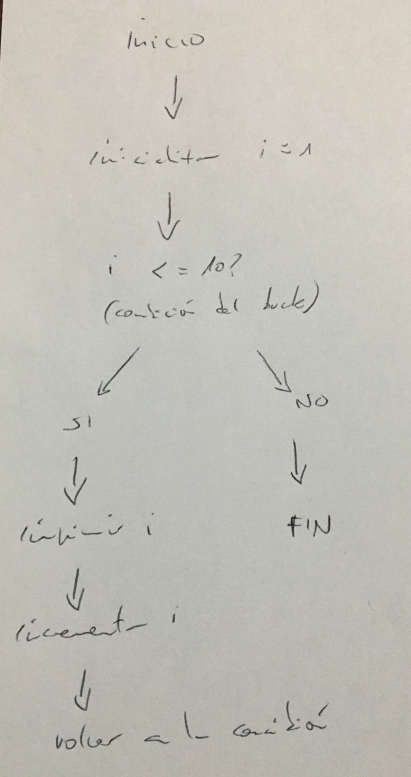 Inicio
inicializar i = 1
i <= 10?
(condición del bucle)
SI
NO
imprimir i
FIN
incrementar i
volver a la condición